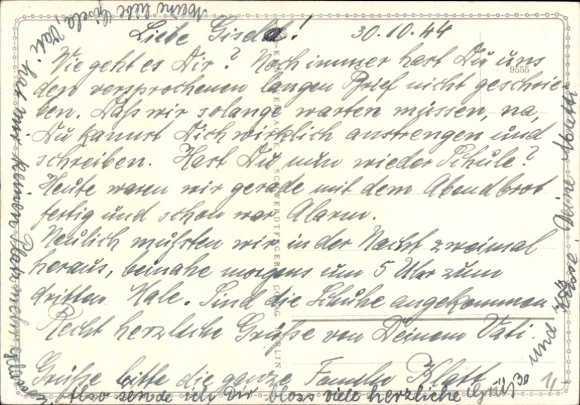 Liebe Gisela! 30.10.44
Wie geht es Dir? Noch immer hast Du uns
den versprochenen langen Brief nicht geschrie-
ben. Daß wir solange warten müssen, na,
Du kannst Dich wirklich anstrengen und
schreiben. Hast Du nun wieder Schule?
Heute waren wir gerade mit dem Abendbrot
fertig und schon war Alarm.
Neulich mußten wir in der Nacht zweimal
heraus, beinahe morgens um 5 Uhr zum
dritten Male. Sind die Schuhe angekommen.
Recht herzliche Grüße von Deinem Vati.
Grüße bitte die ganze Familie
Meine liebe Gisela, Vati
hat mir keinen Platz mehr gelassen
Also sende ich Dir bloss viele herzliche Grüße
und Deine Mutti
9555
BERLIN